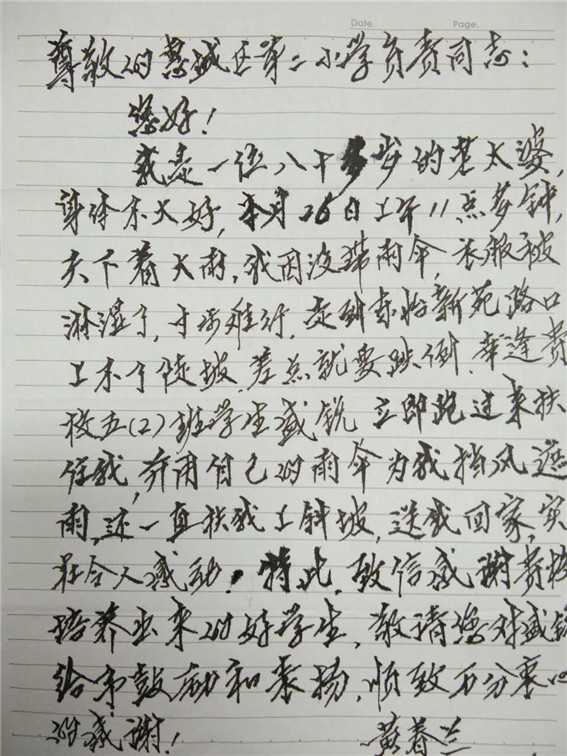 Date. Page.
尊敬的慈城区第二小学负责同志：
您好！
我是一位八十多岁的老太婆，
身体不大好，本月26日上午11点多钟，
天下着大雨，我因没带雨伞，衣服被
淋湿了，寸步难行，走到怡新苑路口
上不了陡坡，差点就要跌倒，幸逢贵
校五(2)班学生盛锐立即跑过来扶
住我，并用自己的雨伞为我挡风遮
雨，还一直扶我上斜坡，送我回家，实
在令人感动，特此，致信感谢贵校
培养出来的好学生，敬请您对盛锐
给予鼓励和表扬，顺致万分衷心
的感谢！ 黄春兰